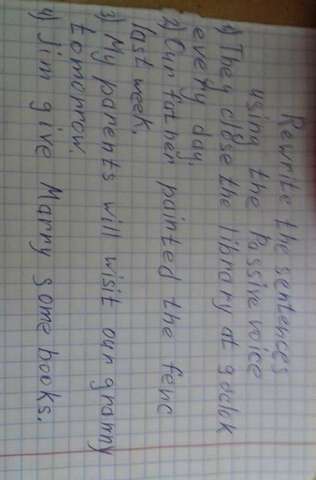 Rewrite the sentences
using the Passive voice
1) They close the library at 9 oclok
every day.
2) Our father painted the fenc
last week.
3) My parents will wisit our granny
tomorrow.
4) Jim give Marry some books.